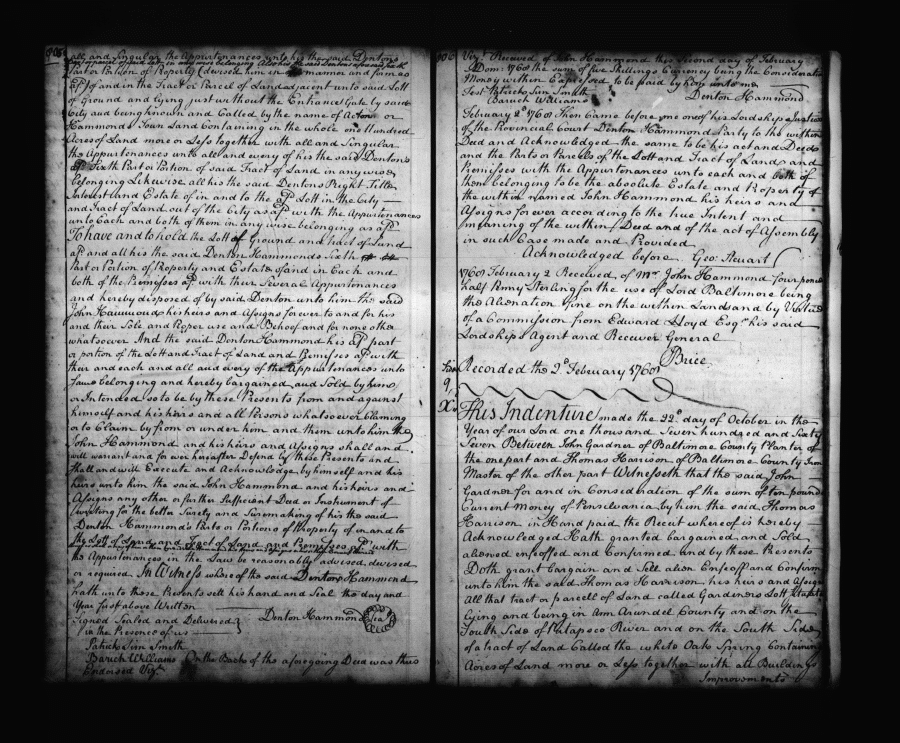 all and Singular the Appurtenances unto his the said Dentons
Part or Portion of Property (devised him in manner and form as
afd.) of and in the Tract or Parcel of Land adjacent unto said Lott
of Ground and lying just without the Entrance Gate by said
City and being known and Called by the name of Acton or
Hammonds Town Land Containing in the whole one Hundred
Acres of Land more or Less together with all and Singular
the Appurtenances unto all and every of his the said Dentons
afd. Sixth Part or Portion of said Tract of Land in any wise
belonging Likewise all his the said Dentons Right Title
Interest and Estate of in and to the afd. Lott in the City
and Tract of Land out of the City as afd. with the Appurtenances
unto Each and both of them in any wise belonging as afd.
To have and to hold the Lott of Ground and Tract of Land
afd. and all his the said Denton Hammonds Sixth
Part or Portion of Property and Estate of and in Each and
both of the Premises afd. with their Several Appurtenances
and hereby disposed of by said Denton unto him the said
John Hammond his heirs and Assigns forever to and for his
and their Sole and Proper use and Behoof and for none other
whatsoever And the said Denton Hammond his afd. part
or portion of the Lott and Tract of Land and Premisses afd. with
their and each and all and every of the Appurtenances unto
Same belonging and hereby bargained and Sold by him
or Intended so to be by these Presents from and against
himself and his heirs and all Persons whatsoever Claiming
or to Claim by from or under him and them unto him the
John Hammond and his heirs and Assigns shall and
will warrant and for ever hereafter Defend by these Presents and
shall and will Execute and Acknowledge by himself and his
heirs unto him the said John Hammond and his heirs and
Assigns any other or further Sufficient Deed or Instrument of
writing for the better Surety and Suremaking of his the said
Denton Hammond's Parts or Portions of Property of in and to
the Lott of Land and Tract of Land and Premises afd. with
the Appurtenances in the Law be reasonably advised, devised
or required In Witness whereof the said Denton Hammond
hath unto these Presents sett his hand and Seal the day and
Year first above Written
Signed Sealed and Delivered } Denton Hammond Seal
in the Presence of us
Patrick Sim Smith
Baruch Williams On the Back of the aforegoing Deed was thus
Endorsed Vizt.
906 Vizt. Received of John Hammond this Second day of February
Dom: 1768 the sum of five Shillings Currency being the Consideration
Money within Expressed to be paid by him unto me
Test Patrick Sim Smith
Baruch Williams Denton Hammond
February 2d. 1768 Then Came before me one of his Lordships Justices
of the Provincial Court Denton Hammond Party to the within
Deed and Acknowledged the same to be his act and Deed
and the Parts or Parcels of the Lott and Tract of Land and
Premisses with the Appurtenances unto each and both of
them belonging to be the absolute Estate and Property of
the within named John Hammond his heirs and
Assigns forever according to the true Intent and
meaning of the within Deed and of the act of Assembly
in such Case made and Provided
Acknowledged before Geo: Steuart
1768 February 2 Received of Mr. John Hammond four pence
half Penny Sterling for the use of Lord Baltimore being
the Alienation fine on the within Land and by Virtue
of a Commission from Edward Lloyd Esqr. his said
Lordships Agent and Receiver General
J Brice
Recorded the 2d. February 1768
This Indenture made the 22d. day of October in the
Year of our Lord one thousand Seven hundred and Sixty
Seven Between John Gardner of Baltimore County Planter of
the one part and Thomas Harrison of Baltimore County Iron
Master of the other part Witnesseth that the said John
Gardner for and in Consideration of the sum of ten pounds
Current Money of Pensilvania by him the said Thomas
Harrison in Hand paid the Receit whereof is hereby
Acknowledged Hath granted bargained and Sold
aliened enfeoffed and Confirmed and by these Presents
Doth grant bargain and Sell alien Enfeoff and Confirm
unto him the said Thomas Harrison his heirs and Assigns
All that tract or parcell of Land called Gardiners Lott
lying and being in Ann Arundel County and on the
South Side of Patapsco River and on the South Side
of a tract of Land Called the white Oak Spring Containing
Acres of Land more or Less together with all Buildings
Improvements